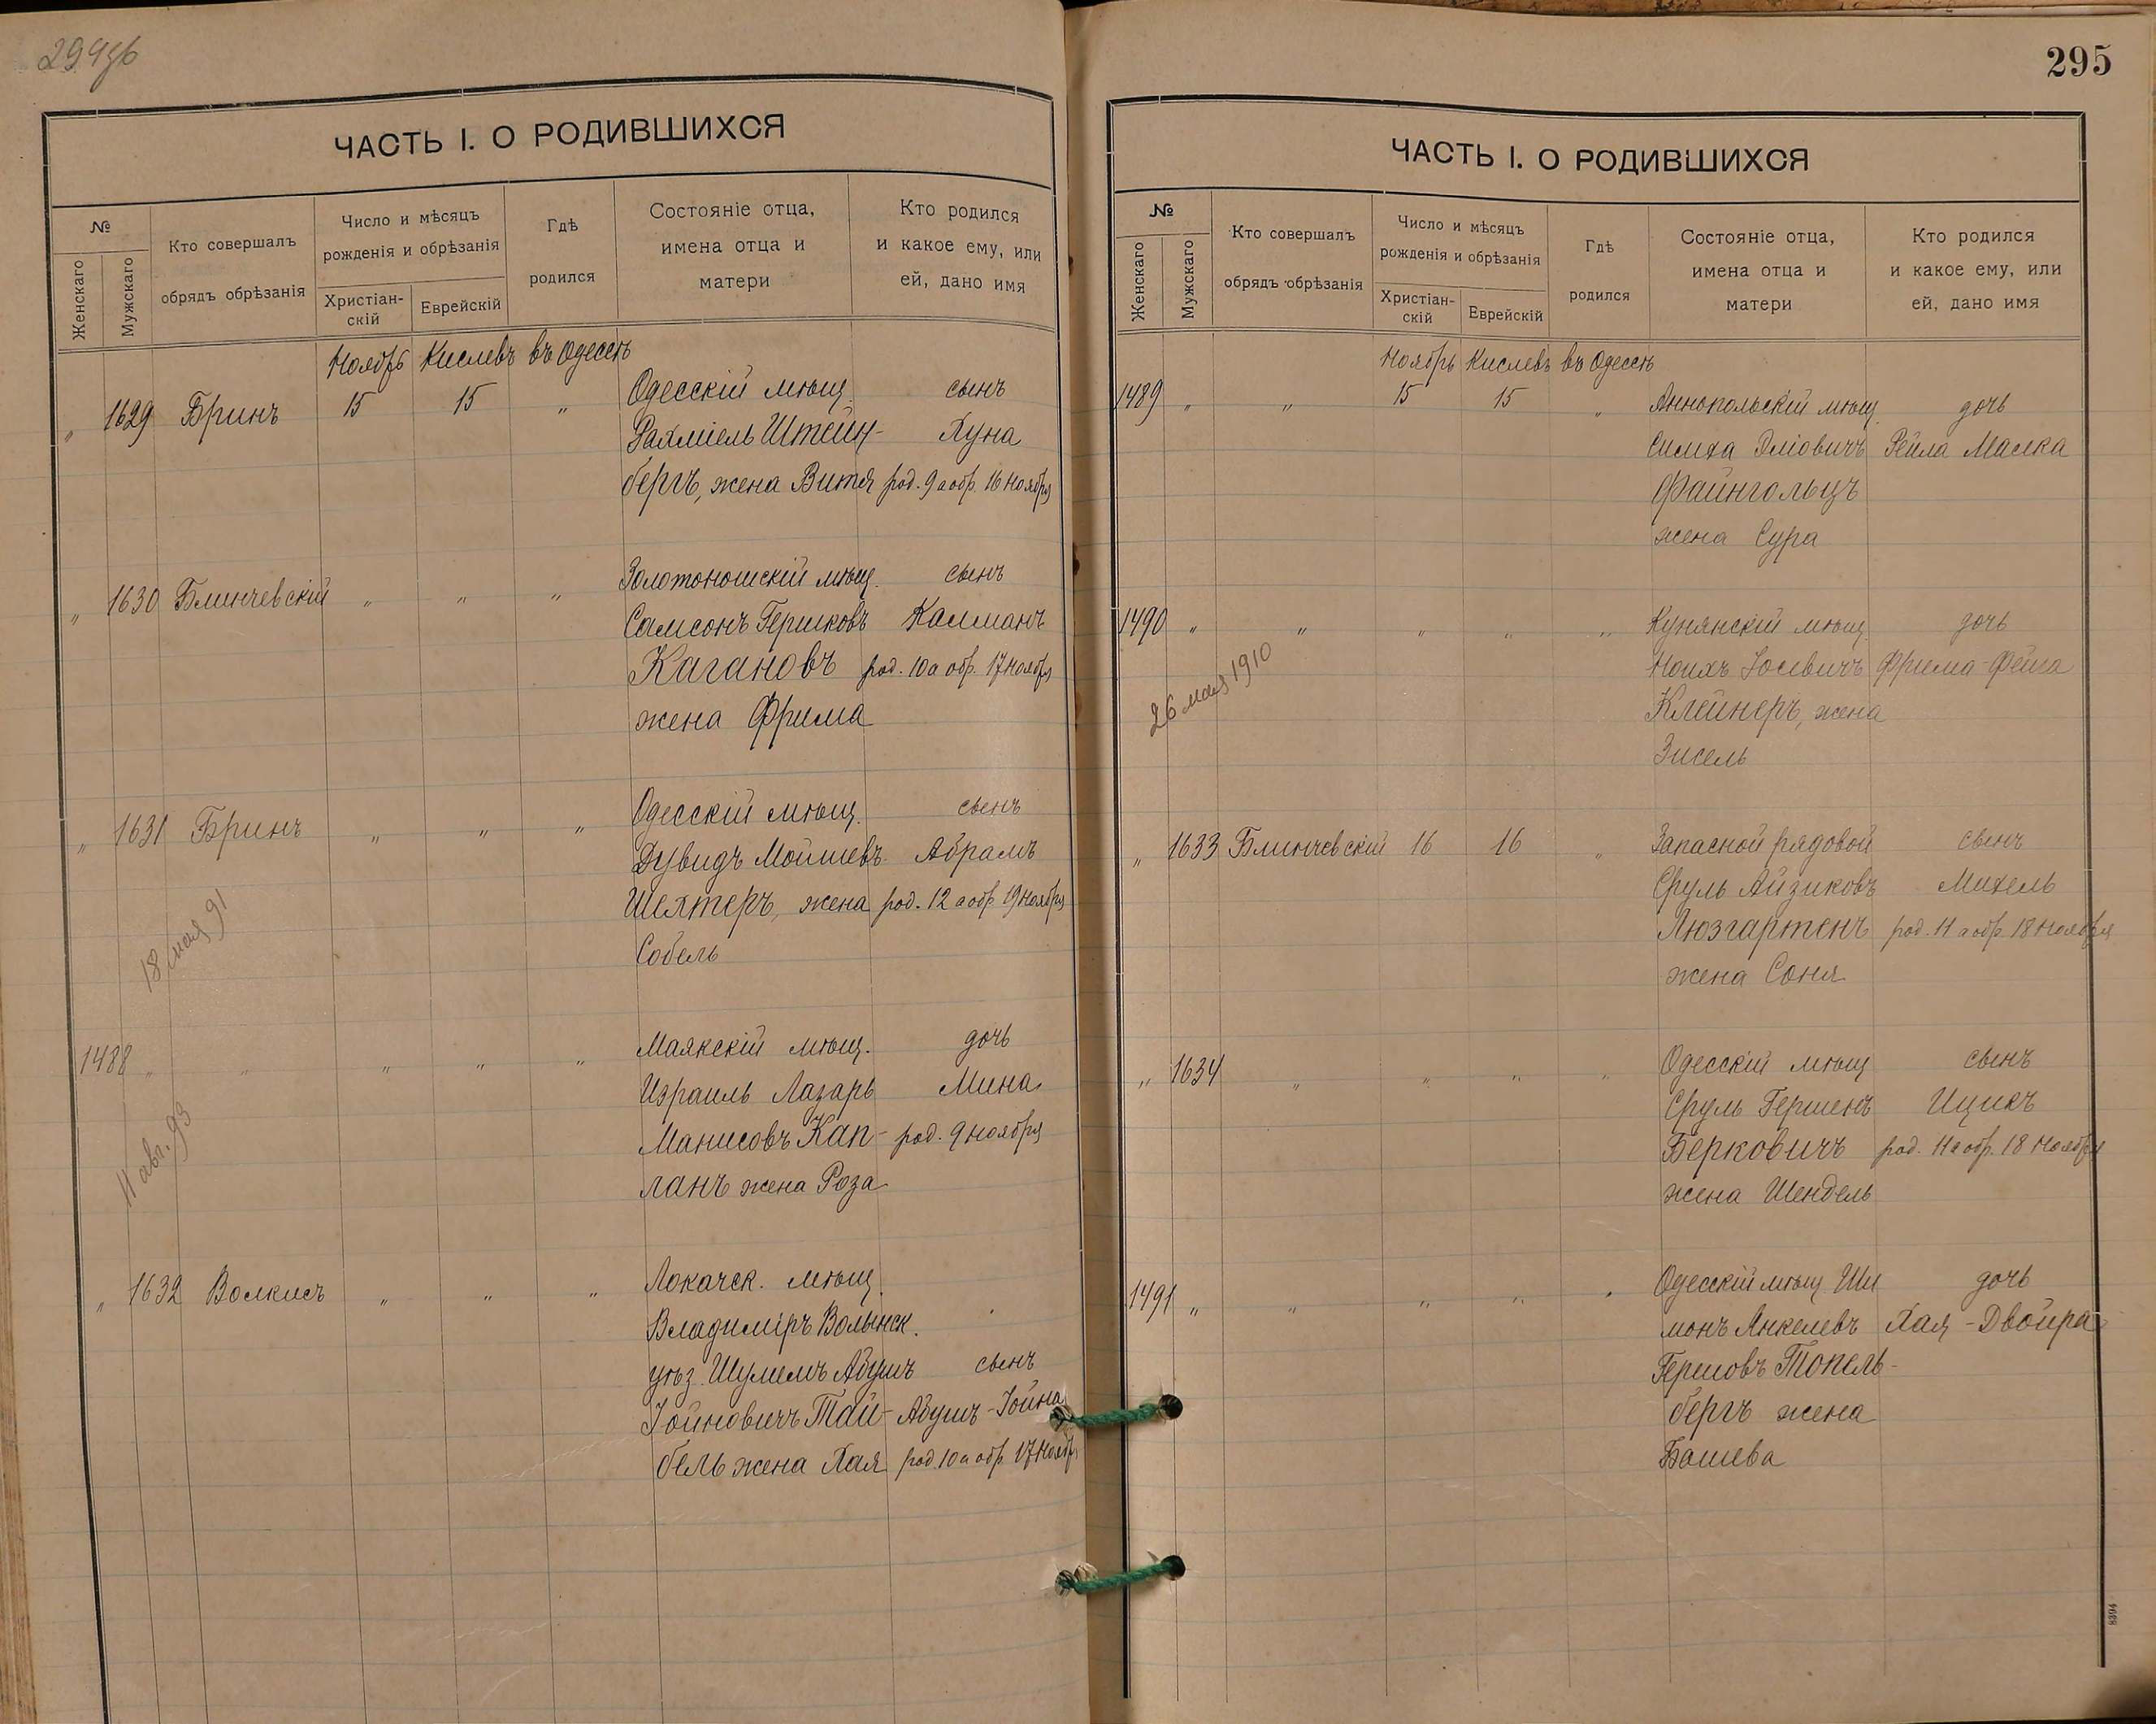 294об
ЧАСТЬ I. О РОДИВШИХСЯ
№
Женскаго
Мужскаго
Кто совершалъ
обрядъ обрѣзанія
Число и мѣсяцъ
рожденія и обрѣзанія
Христіан-
скій
Еврейскій
Гдѣ
родился
Состояніе отца,
имена отца и
матери
Кто родился
и какое ему, или
ей, дано имя
Ноябрь Кислевъ въ Одессѣ
" 1629 Бринъ 15 15 " Одесскій мѣщ. сынъ
Рахміель Штейн- Хуна
бергъ, жена Витя род. 9 а обр. 16 Ноября
" 1630 Блинчевскій " " " Золотоношскій мѣщ. сынъ
Самсонъ Гершковъ Калманъ
Кагановъ род. 10 а обр. 17 Ноября
жена Фрима
" 1631 Бринъ " " " Одесскій мѣщ. сынъ
Дувидъ Мошневъ Абрамъ
Шехтеръ, жена род. 12 а обр 19 Ноября
Собель
18 мая 91
1488 " " " " " Маякскій мѣщ. дочь
Израиль Лазарь Мина
Манисовъ Кап- род. 9 ноября
ланъ жена Роза
11 авг. 93
" 1632 Волкисъ " " " Локачск. мѣщ.
Владиміръ Волынск.
уѣз. Шулемъ Абушъ сынъ
Іойновичъ Тай- Абушъ-Іойна
бель жена Хая род. 10 а обр. 17 Ноябр
295
ЧАСТЬ I. О РОДИВШИХСЯ
№
Женскаго
Мужскаго
Кто совершалъ
обрядъ обрѣзанія
Число и мѣсяцъ
рожденія и обрѣзанія
Христіан-
скій
Еврейскій
Гдѣ
родился
Состояніе отца,
имена отца и
матери
Кто родился
и какое ему, или
ей, дано имя
Ноябрь Кислевъ въ Одессѣ
1489 " " 15 15 " Аннопольскій мѣщ. дочь
Симха Эліовичъ Рейла Малка
Файнгольцъ
жена Сура
1490 " " " " " Кунянскій мѣщ. дочь
Ноихъ Іосевичъ Фрима-Фейга
Клейнеръ, жена
Зисель
26 мая 1910
" 1633 Блинчевскій 16 16 " Запасной рядовой сынъ
Сруль Айзиковъ Михель
Люзгартенъ род. 11 а обр. 18 Ноября
жена Соня
" 1634 " " " " Одесскій мѣщ сынъ
Сруль Гершенъ Ицикъ
Берковичъ род. 11 а обр. 18 Ноября
жена Шендель
1491 " " " " " Одесскій мѣщ. Ши дочь
монъ Янкелевъ Хая-Двойра
Гершовъ Топель-
бергъ жена
Башева
8394